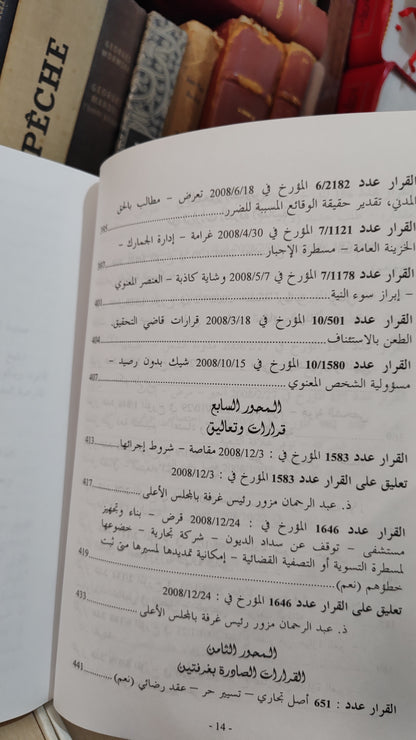 PÊCHE
GEORGES
GEORGES
القرار عدد 6/2182 المؤرخ في 2008/6/18 تعرض – مطالب بالحق
المدني، تقدير حقيقة الوقائع المسببة للضرر
395
القرار عدد 7/1121 المؤرخ في 2008/4/30 غرامة – إدارة الجمارك –
الخزينة العامة – مسطرة الإجبار
397
القرار عدد 7/1178 المؤرخ في 2008/5/7 وشاية كاذبة – العنصر المعنوي
– إبراز سوء النية
401
القرار عدد 10/501 المؤرخ في 2008/3/18 قرارات قاضي التحقيق.
الطعن بالاستئناف
404
القرار عدد 10/1580 المؤرخ في 2008/10/15 شيك بدون رصيد –
مسؤولية الشخص المعنوي
407
المحور السابع
قرارات وتعاليق
القرار عدد 1583 المؤرخ في : 2008/12/3 مقاصة – شروط إجرائها
413
تعليق على القرار عدد 1583 المؤرخ في : 2008/12/3
ذ. عبد الرحمان مزور رئيس غرفة بالمجلس الأعلى
417
القرار عدد 1646 المؤرخ في : 2008/12/24 قرض – بناء وتجهيز
مستشفى – توقف عن سداد الديون – شركة تجارية – خضوعها
لمسطرة التسوية أو التصفية القضائية – إمكانية تمديدها لمسيرها متى ثبت
خطؤهم (نعم)
419
تعليق على القرار عدد 1646 المؤرخ في : 2008/12/24
ذ. عبد الرحمان مزور رئيس غرفة بالمجلس الأعلى
433
المحور الثامن
القرارات الصادرة بغرفتين
القرار عدد : 651 أصل تجاري – تسيير حر – عقد رضائي (نعم)
441
- 14 -